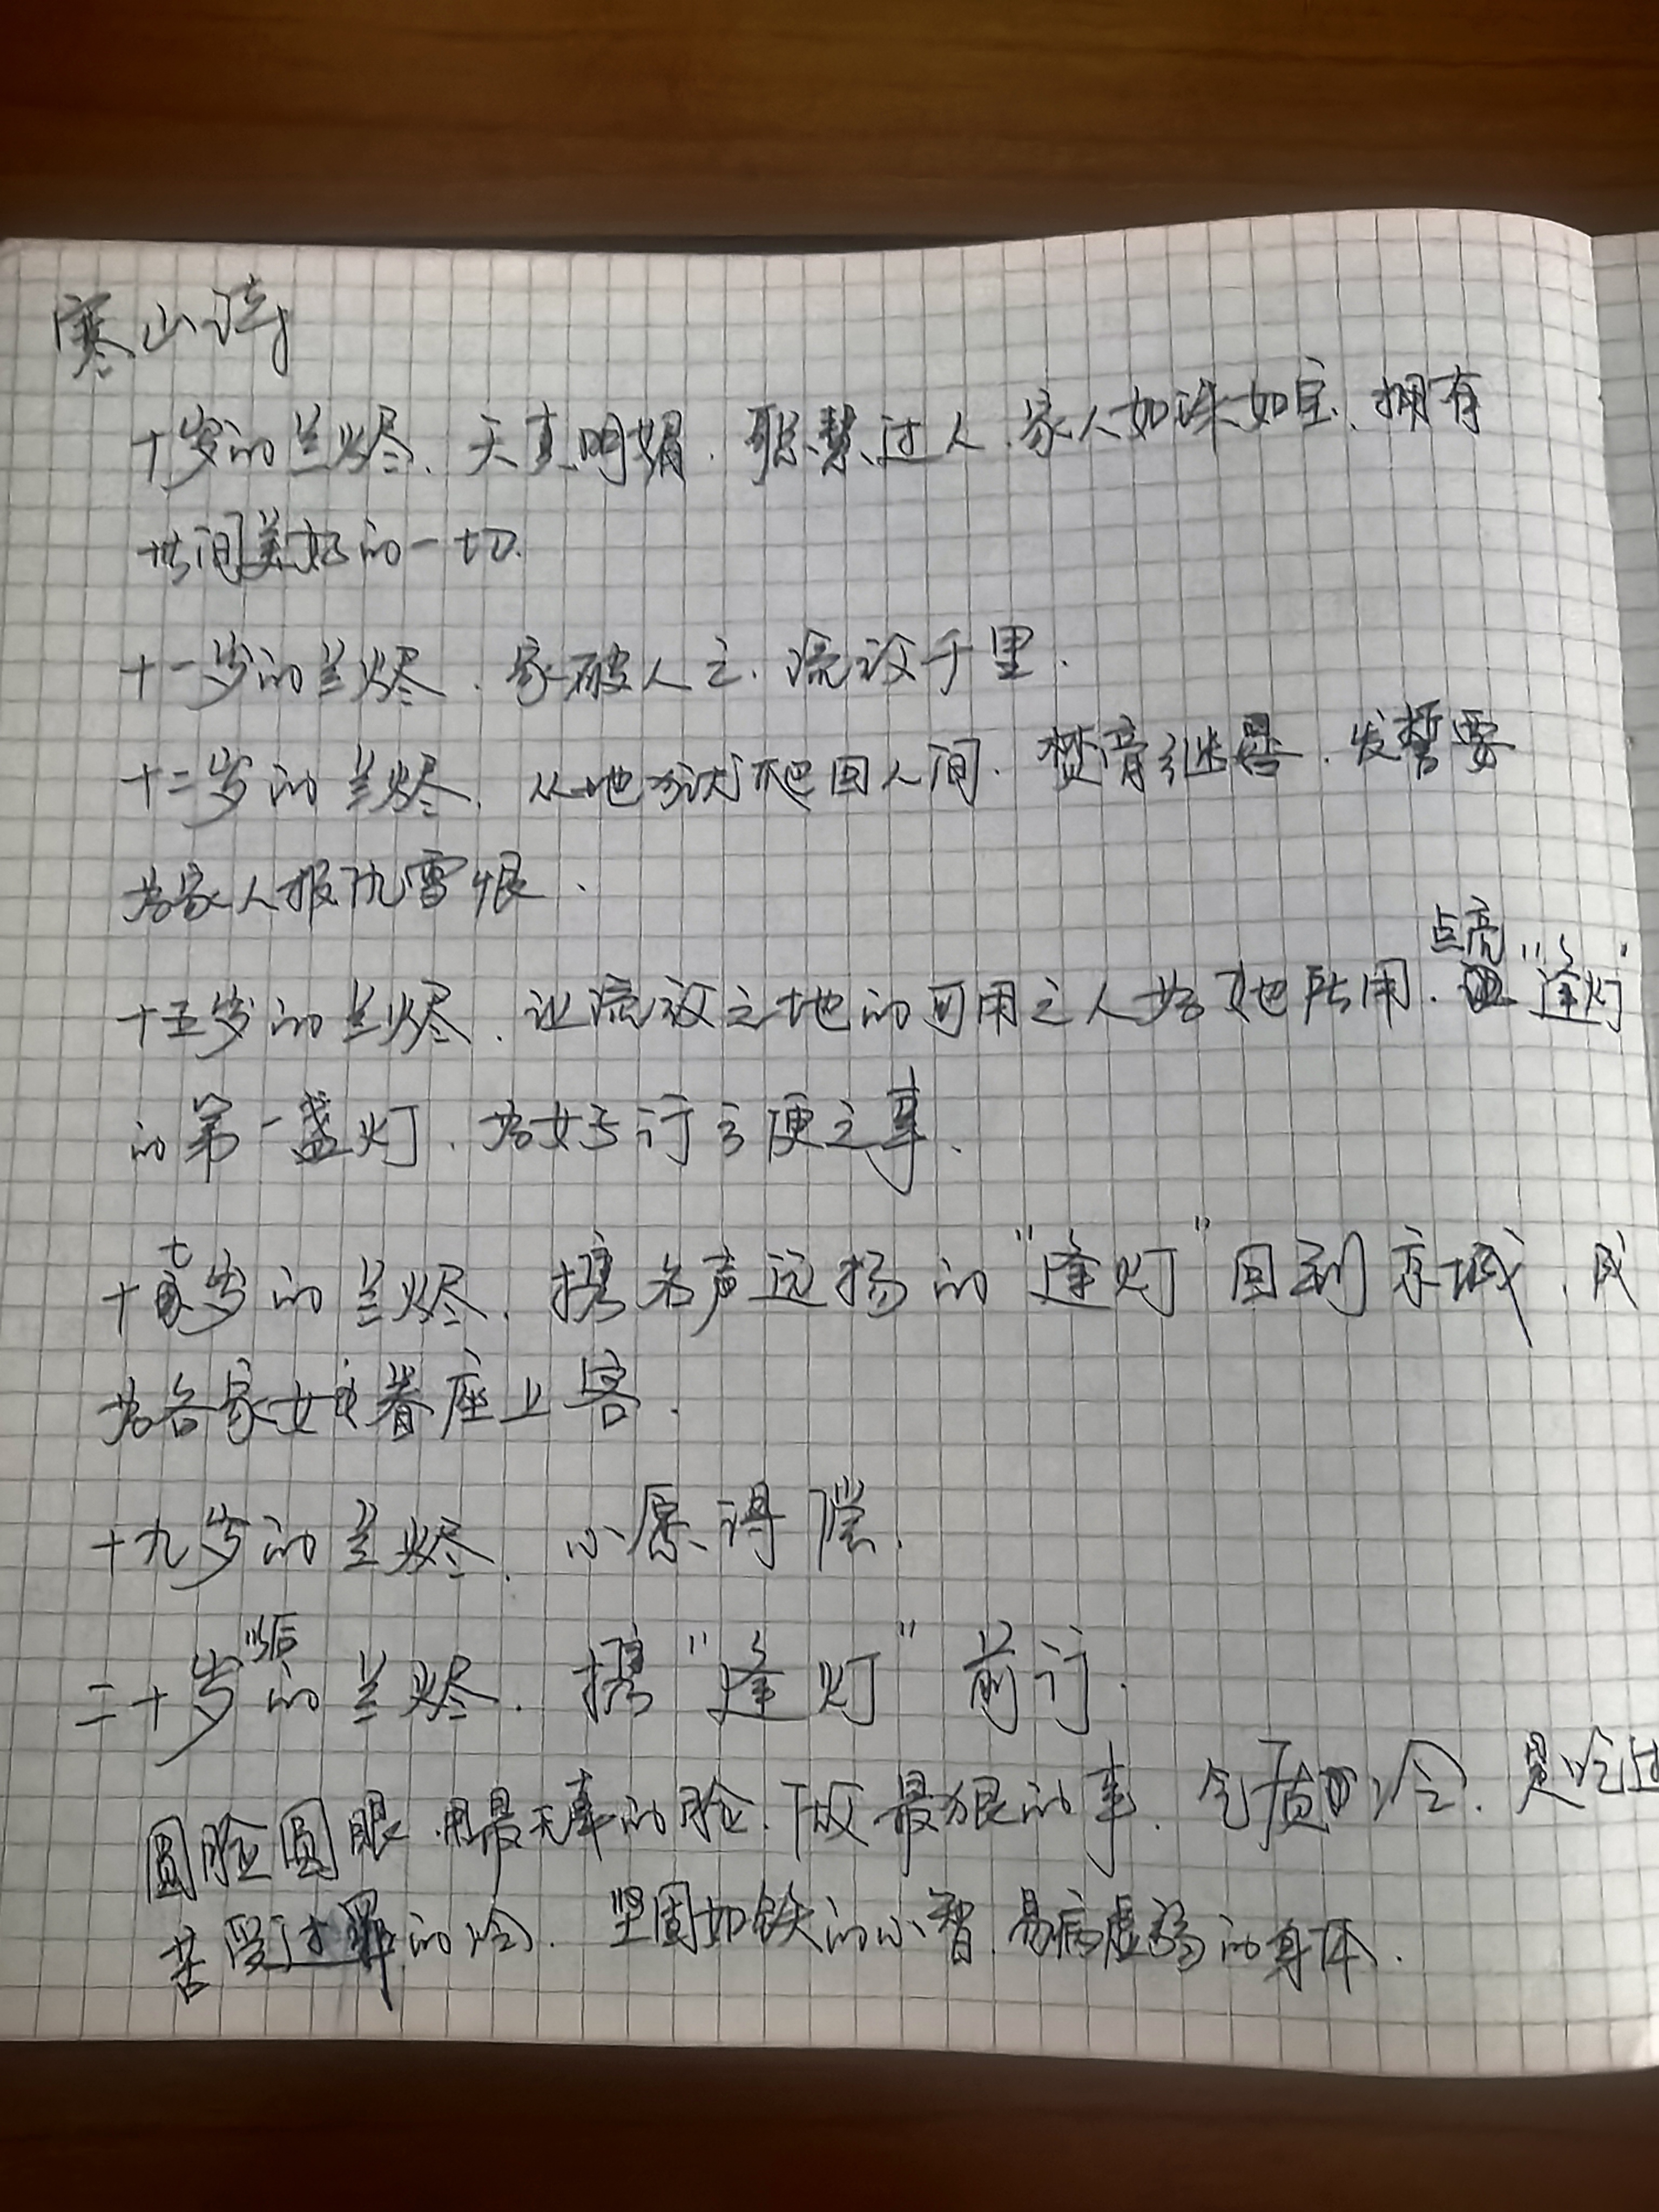 寒山诗
十岁的兰烬、天真明媚、聪慧过人、家人如珠如宝、拥有
世间美好的一切.
十一岁的兰烬、家破人亡、流放千里.
十二岁的兰烬、从地狱爬回人间、焚膏继晷、发誓要
为家人报仇雪恨.
十五岁的兰烬、让流放之地的可用之人为她所用、点亮“逢灯”
的第一盏灯、为女子行方便之事、
十七岁的兰烬、携名声远扬的“逢灯”回到京城、成
为各家女眷座上客.
十九岁的兰烬、心愿得偿.
二十岁以后的兰烬、携“逢灯”前行.
圆脸圆眼、用最无辜的脸、做最狠的事、气质冷、是吃过
苦受过罪的冷、坚固如铁的心智、易病虚弱的身体.